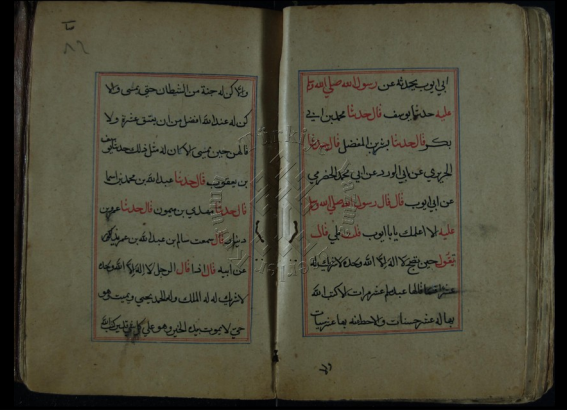 ابي ايوب يحدثه عن رسول الله صلي الله
عليه حدثنا يوسف قال حدثنا محمد بن ابي
بكر قال حدثنا بشر بن المفضل قال حدثنا
الجريري عن ابي الورد عن ابي محمد الحضرمي
عن ابي ايوب قال قال رسول الله صلي الله
عليه الا اعلمك يا با ايوب قلت بلي قال
تقول حين تصبح لا اله الا الله وحده لا شريك له
قالها عبد عشر مرات الا كتب الله
بها له عشر حسنات والا حط عنه بها عشر سيات
والا كن له جنة من الشيطان حتي يمسي والا
كن له عند الله افضل من ان يعتق عشرة ولا
قالهن حين يمسي الا كان له مثل ذلك حدثنا
بن يعقوب قال حدثنا عبد الله بن محمد بن اسما
قال حدثنا مهدي بن ميمون قال حدثنا عمرو بن
دينار قال سمعت سالم بن عبد الله بن عمر يذكر
عن ابيه قال اذا قال الرجل لا اله الا الله وحده
لا شريك له له الملك وله الحمد يحيي ويميت وهو
حي لا يموت بيده الخير وهو علي كل شي قدير كتب الله